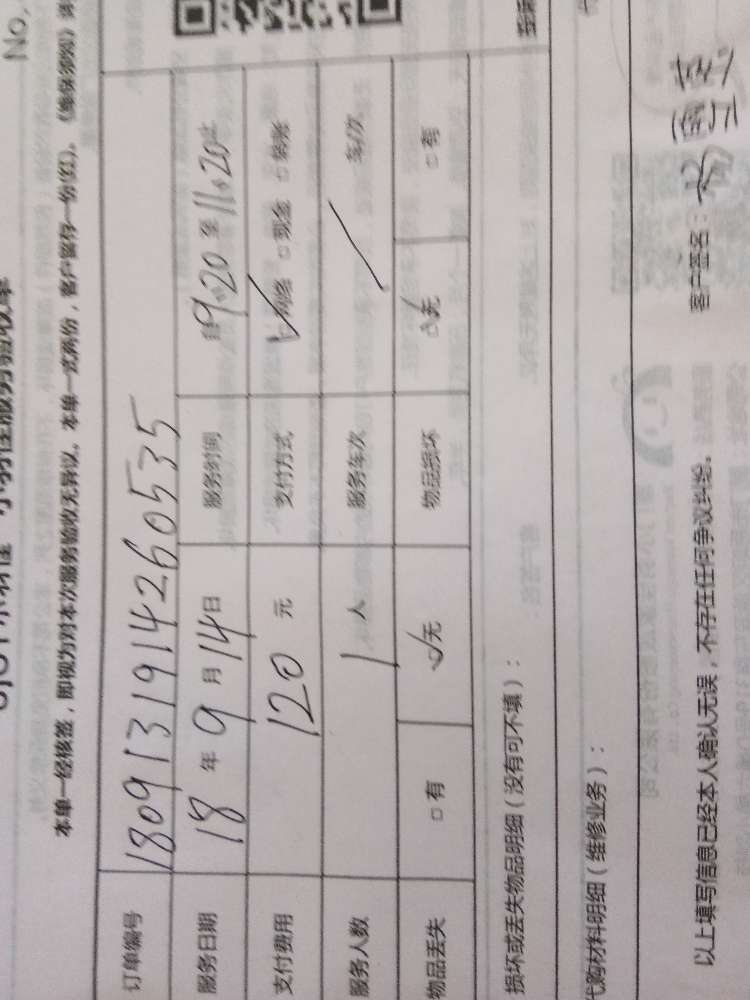 No.
小羽佳服务验收单
本单一经核签，即视为对本次服务验收无异议。本单一式两份，客户留存一份(红)。《维保须知》
订单编号 1809131914260535
服务日期 18年9月14日 服务时间 自9.20至11.20止
支付费用 120元 支付方式 ☑网络 □现金 □转账
服务人数 1人 服务车次 / 车/次
物品丢失 □有 ☑无 物品损坏 ☑无 □有
损坏或丢失物品明细（没有可不填）：
代购材料明细（维修业务）：
以上填写信息已经本人确认无误，不存在任何争议纠纷。 客户签名：